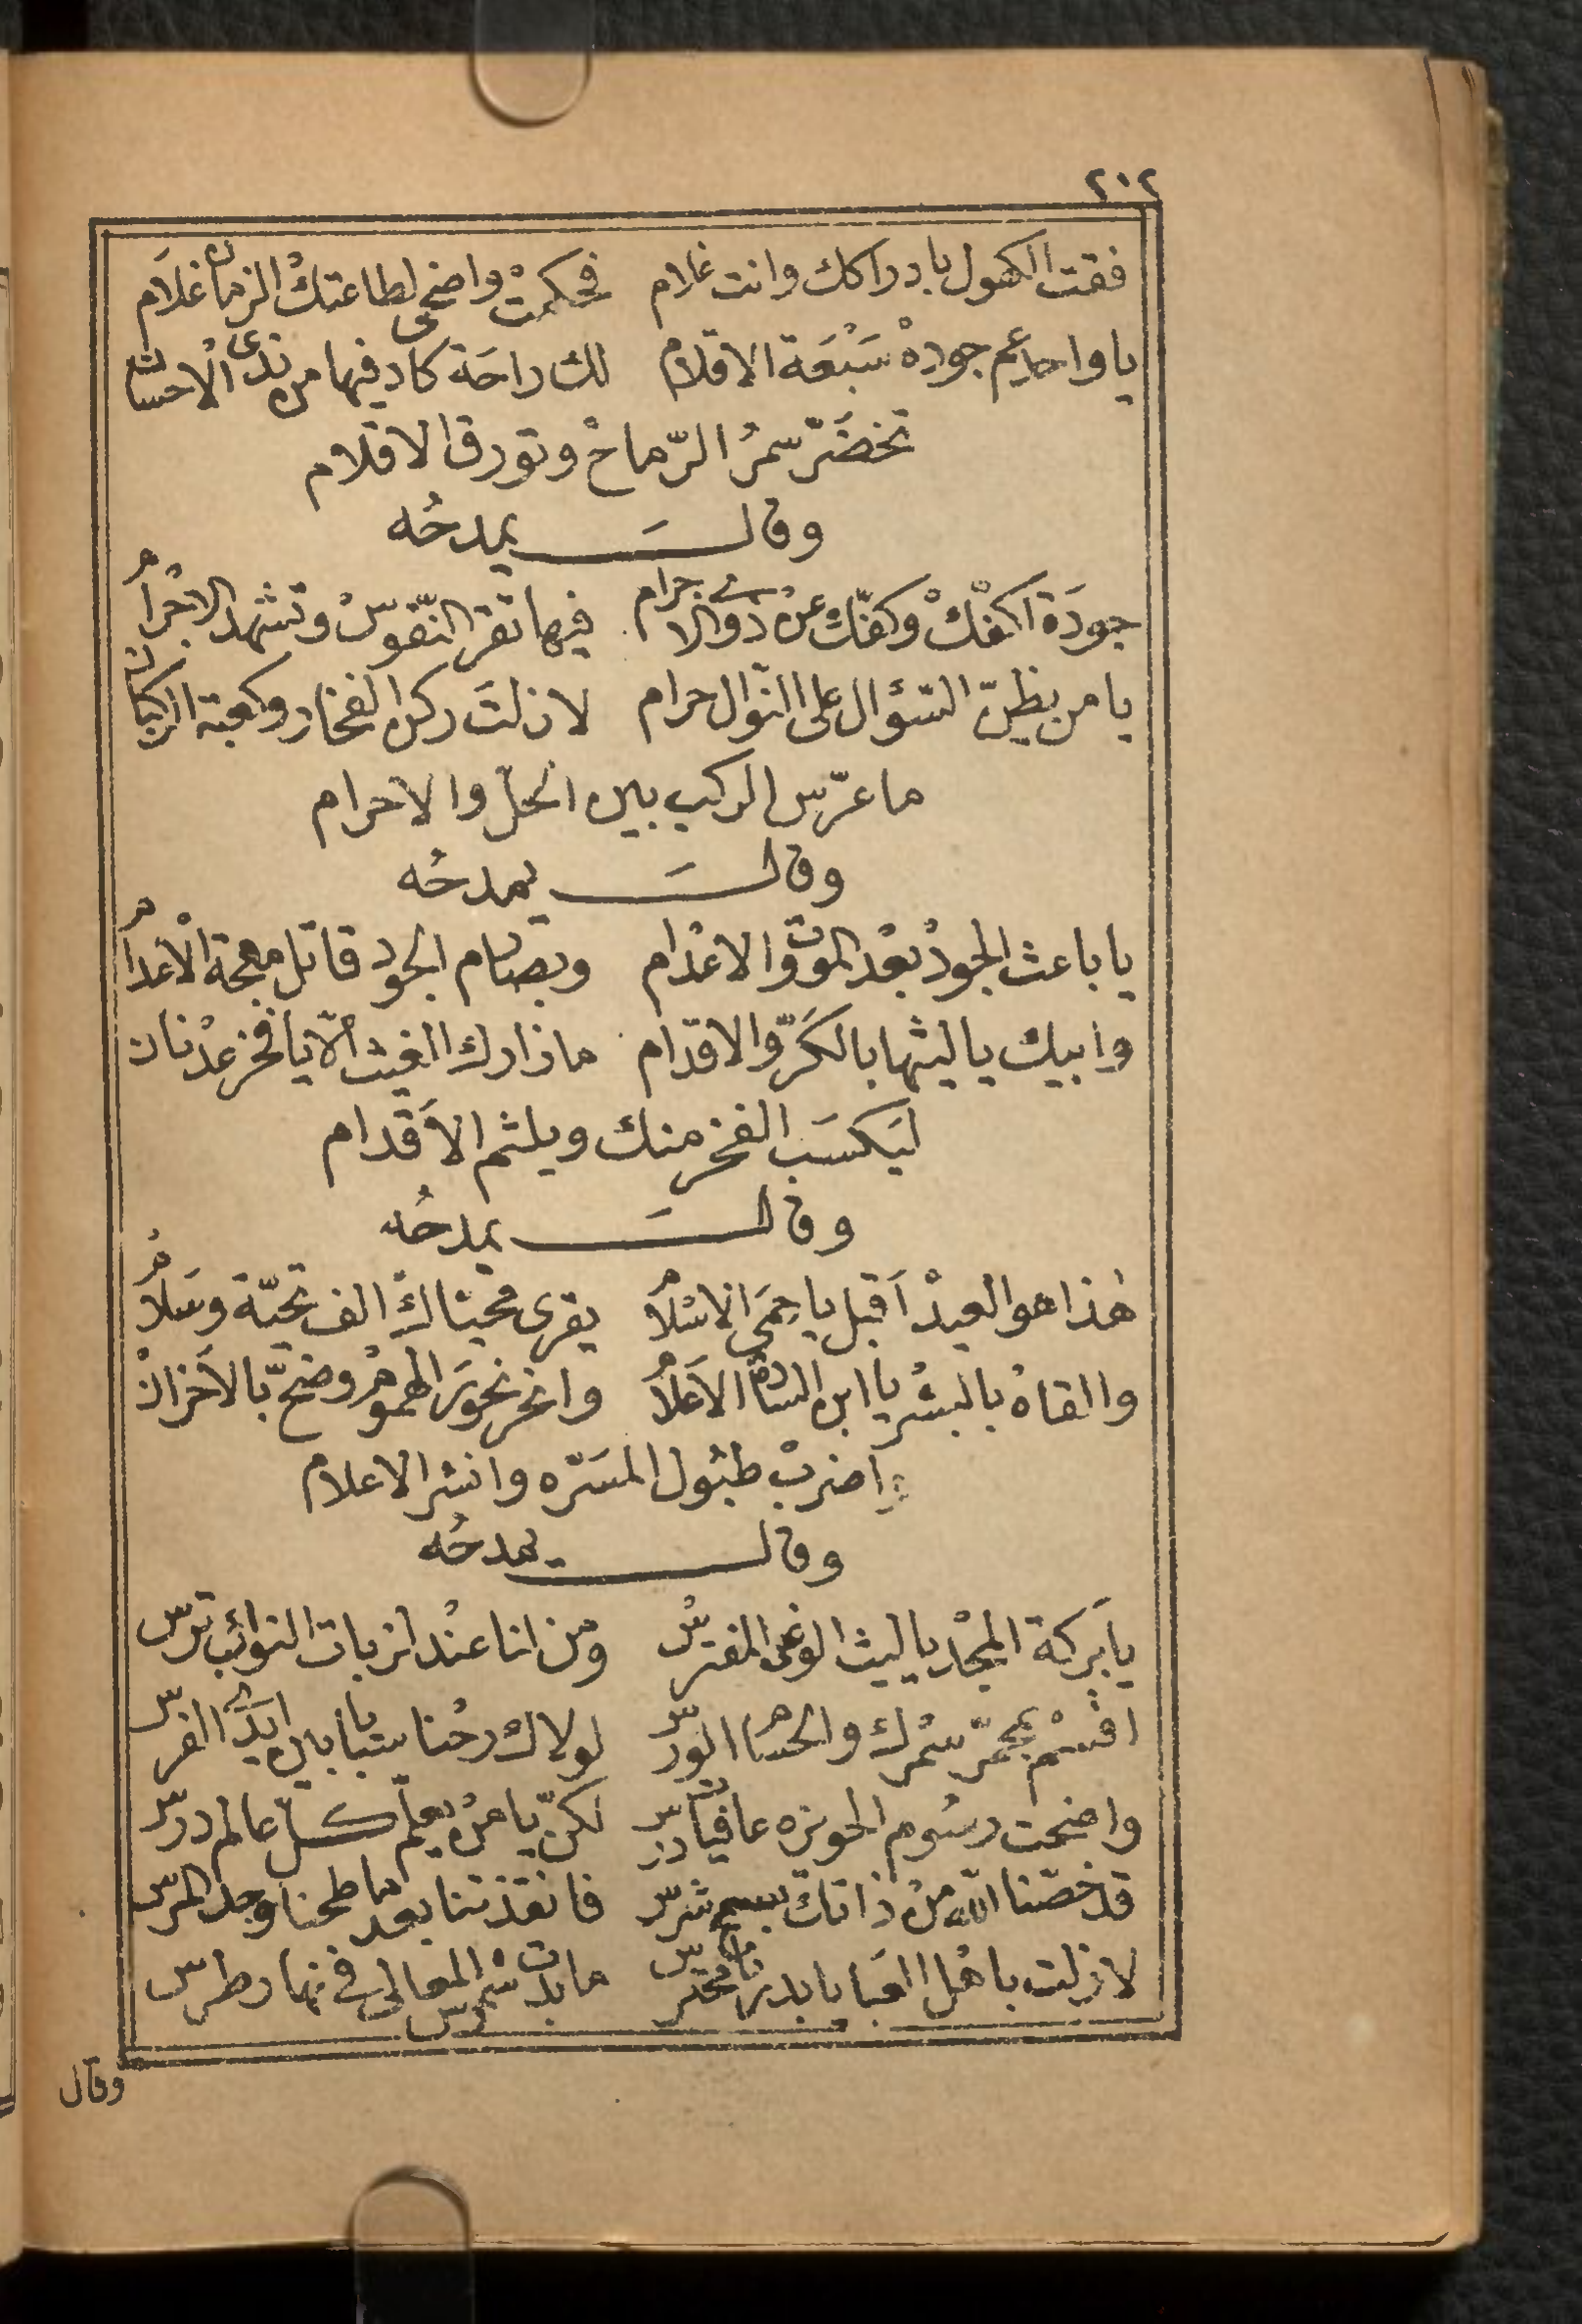 ٢٠٢
فقت الكهول بادراكك وانت غلام فحكمت واضحى لطاعتك الزمان غلام
يا واحد عم جوده سَبْعَة الاقلام لك راحَة كاد فيها من ندى الاحسان
تخضَرّ سمرُ الرّماحْ وتورق الاقلام
وقالَ يمدحُه
جودَة اكفّكْ وكفّك عنْ ذوي الاجرام فيها تقر النّفوسْ وتشهد الاجْرامُ
يا من يظنّ السّؤال على النّوال حرام لا زلتَ ركن الفخار وكعبة الركبان
ما عرّس الركب بين الحلّ والاحرام
وقالَ يمدحُه
يا باعث الجودْ بعْد الموت والاعْدام وبصمصام الجود قاتل مهجة الْاعدامُ
وابيك يا ليثها بالكَرّ والاقدام ما زارك الغيث الّا يا فخر عدْنان
ليَكسَب الفخر منك ويلثم الأَقدام
وقالَ يمدحُه
هٰذا هو العيدْ اَقبل يا حِمَى الاسْلامُ يقرى محيّاكْ الف تحيّة وسَلامُ
والقاهْ بالبشْر يا ابن السادة الاَعلامُ وانحر نحوَر الهمومْ وضحّ بالاَحزانْ
واضربْ طبُول المسَرّه وانشر الاعلام
وقال يمدحُه
يا بَركة المجْد يا ليث الوغى المفترسْ ومن انا عنْد لزبات النوائب ترس
اقسْم بمحمرّ سمْرك والحسام الورس لولاك رحْنا سبايا بين ايدي الفرس
واضحت رسُوم الحويزه عافيات درس لكنّ يا منْ يعلّم كل عالم درس
قد خصّنا اللّه منْ ذاتك بسبع شرس فانقذتنا بعد ما طحنا وجلد المرس
لا زلت باهْل العبا يا بدرنا محترس ما بدت شْموس المعالي في نهار طرس
وقال